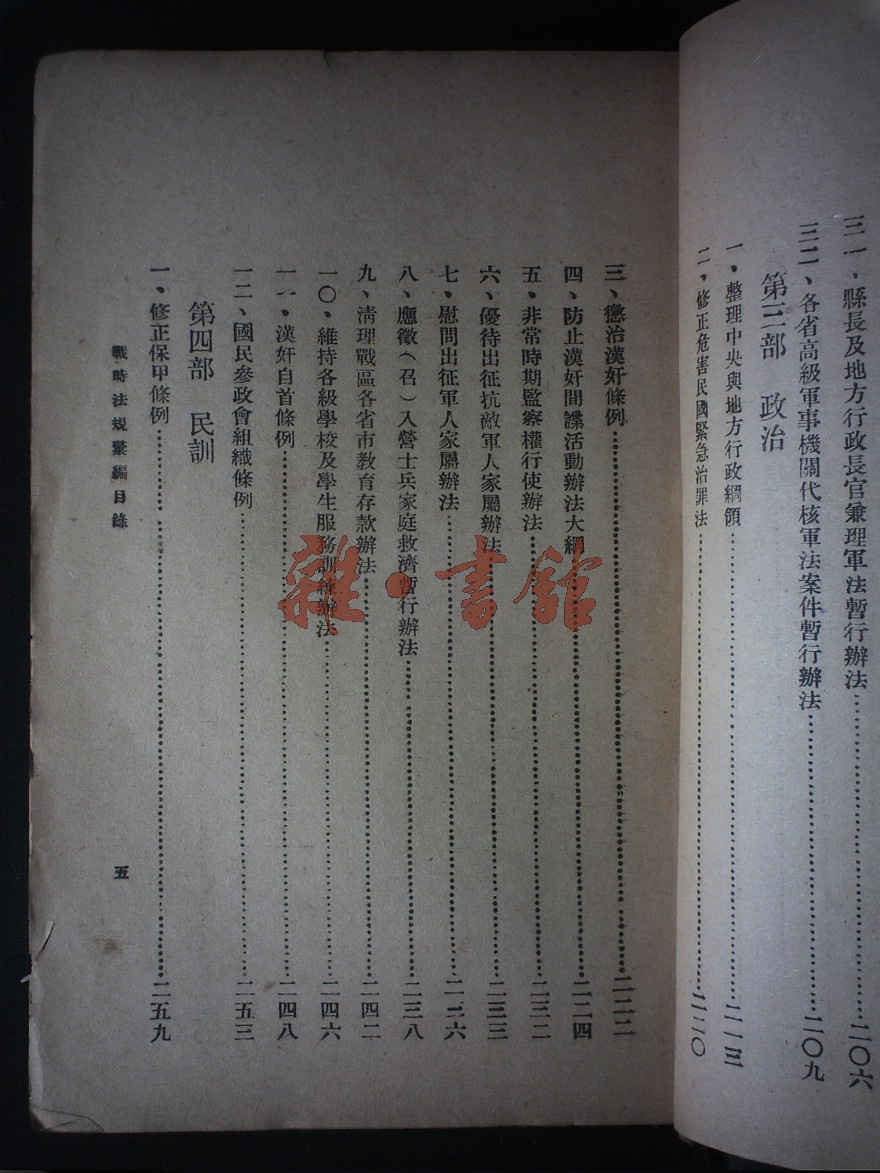 三一、縣長及地方行政長官兼理軍法暫行辦法……二〇六
三二、各省高級軍事機關代核軍法案件暫行辦法……二〇九
第三部　政治
一、整理中央與地方行政綱領……二一三
二、修正危害民國緊急治罪法……二二〇
三、懲治漢奸條例……二二二
四、防止漢奸間諜活動辦法大綱……二二四
五、非常時期監察權行使辦法……二三二
六、優待出征抗敵軍人家屬辦法……二三三
七、慰問出征軍人家屬辦法……二三六
八、應徵（召）入營士兵家庭救濟暫行辦法……二三八
九、清理戰區各省市教育存款辦法……二四二
一〇、維持各級學校及學生服務訓練辦法……二四六
一一、漢奸自首條例……二四八
一二、國民參政會組織條例……二五三
第四部　民訓
一、修正保甲條例……二五九
戰時法規彙編目錄
五
雜·書館